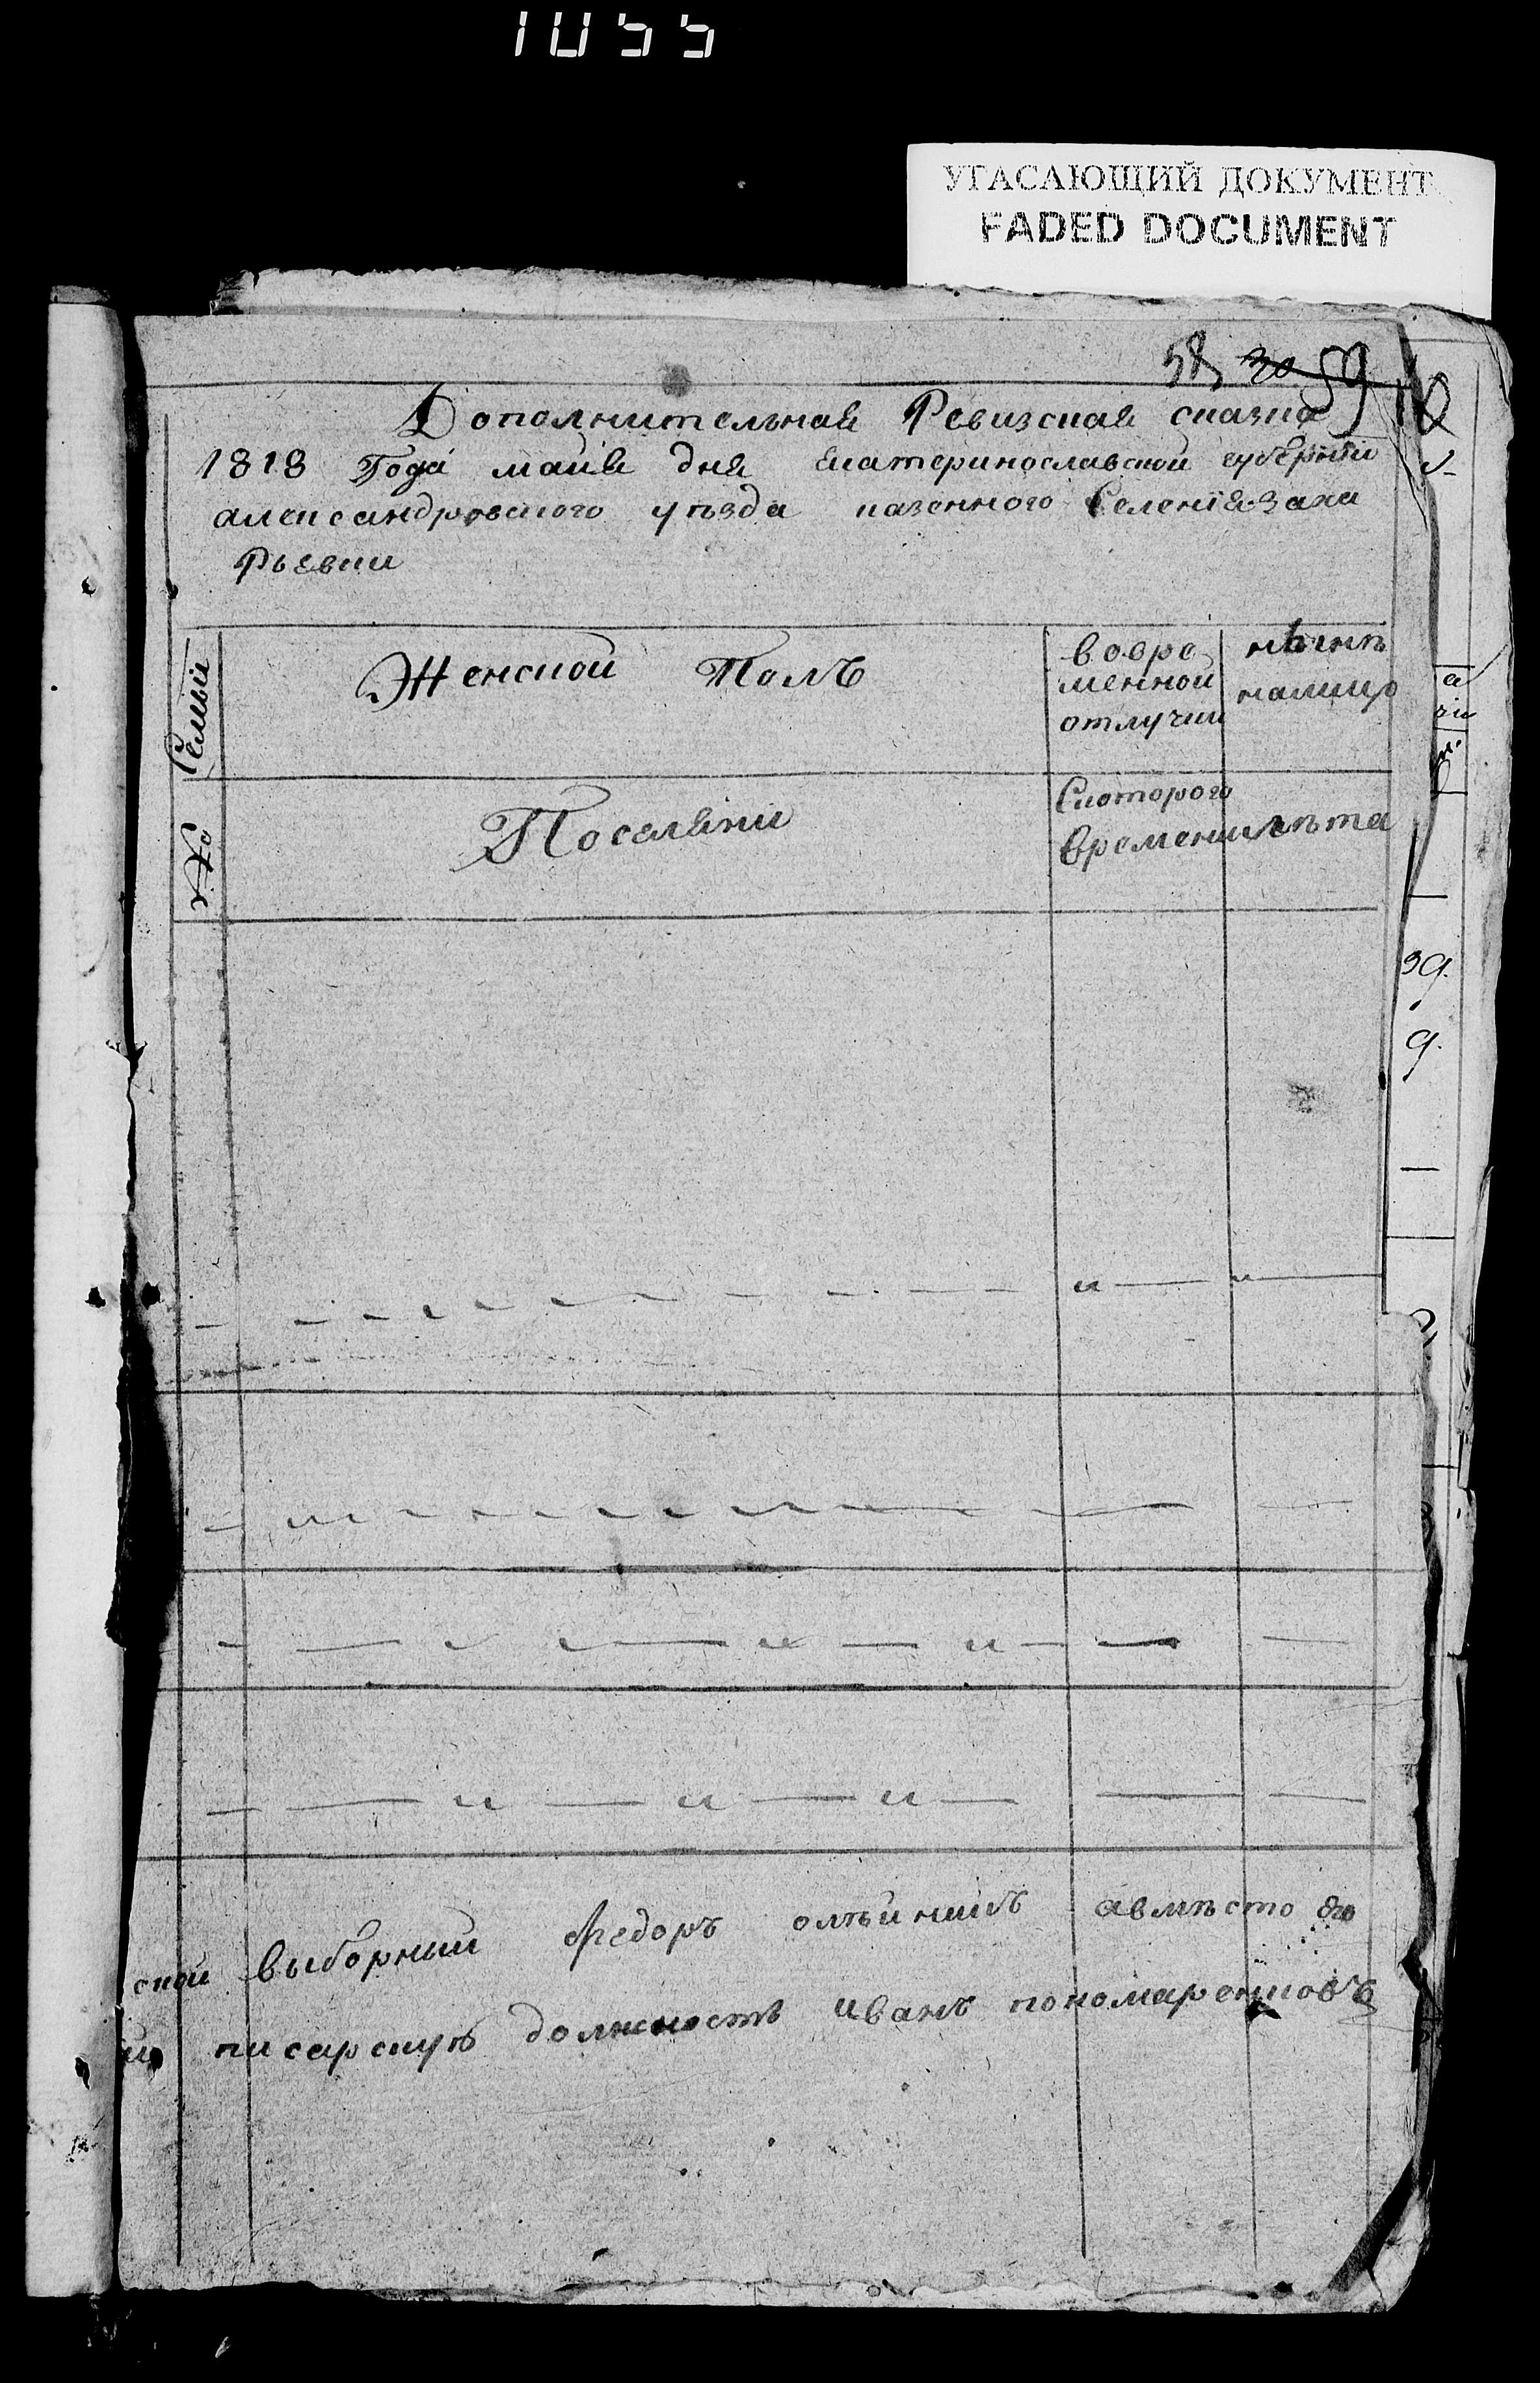 1055
УГАСАЮЩИЙ ДОКУМЕНТ
FADED DOCUMENT
58 30 59
Дополнительная Ревизская сказка
1818 Года маия дня Екатеринославской губернїи
александровского уѣзда казенного Селенїя Заха
Рьевки
Семьи
Женской Полъ
вовре
менной
отлучки
нынѣ
налицо
№
Поселяни
Скоторого
времени
лѣта
39.
9.
ской выборный Федоръ олѣйникъ авмѣсто его
писарскую должность иванъ пономаренковъ